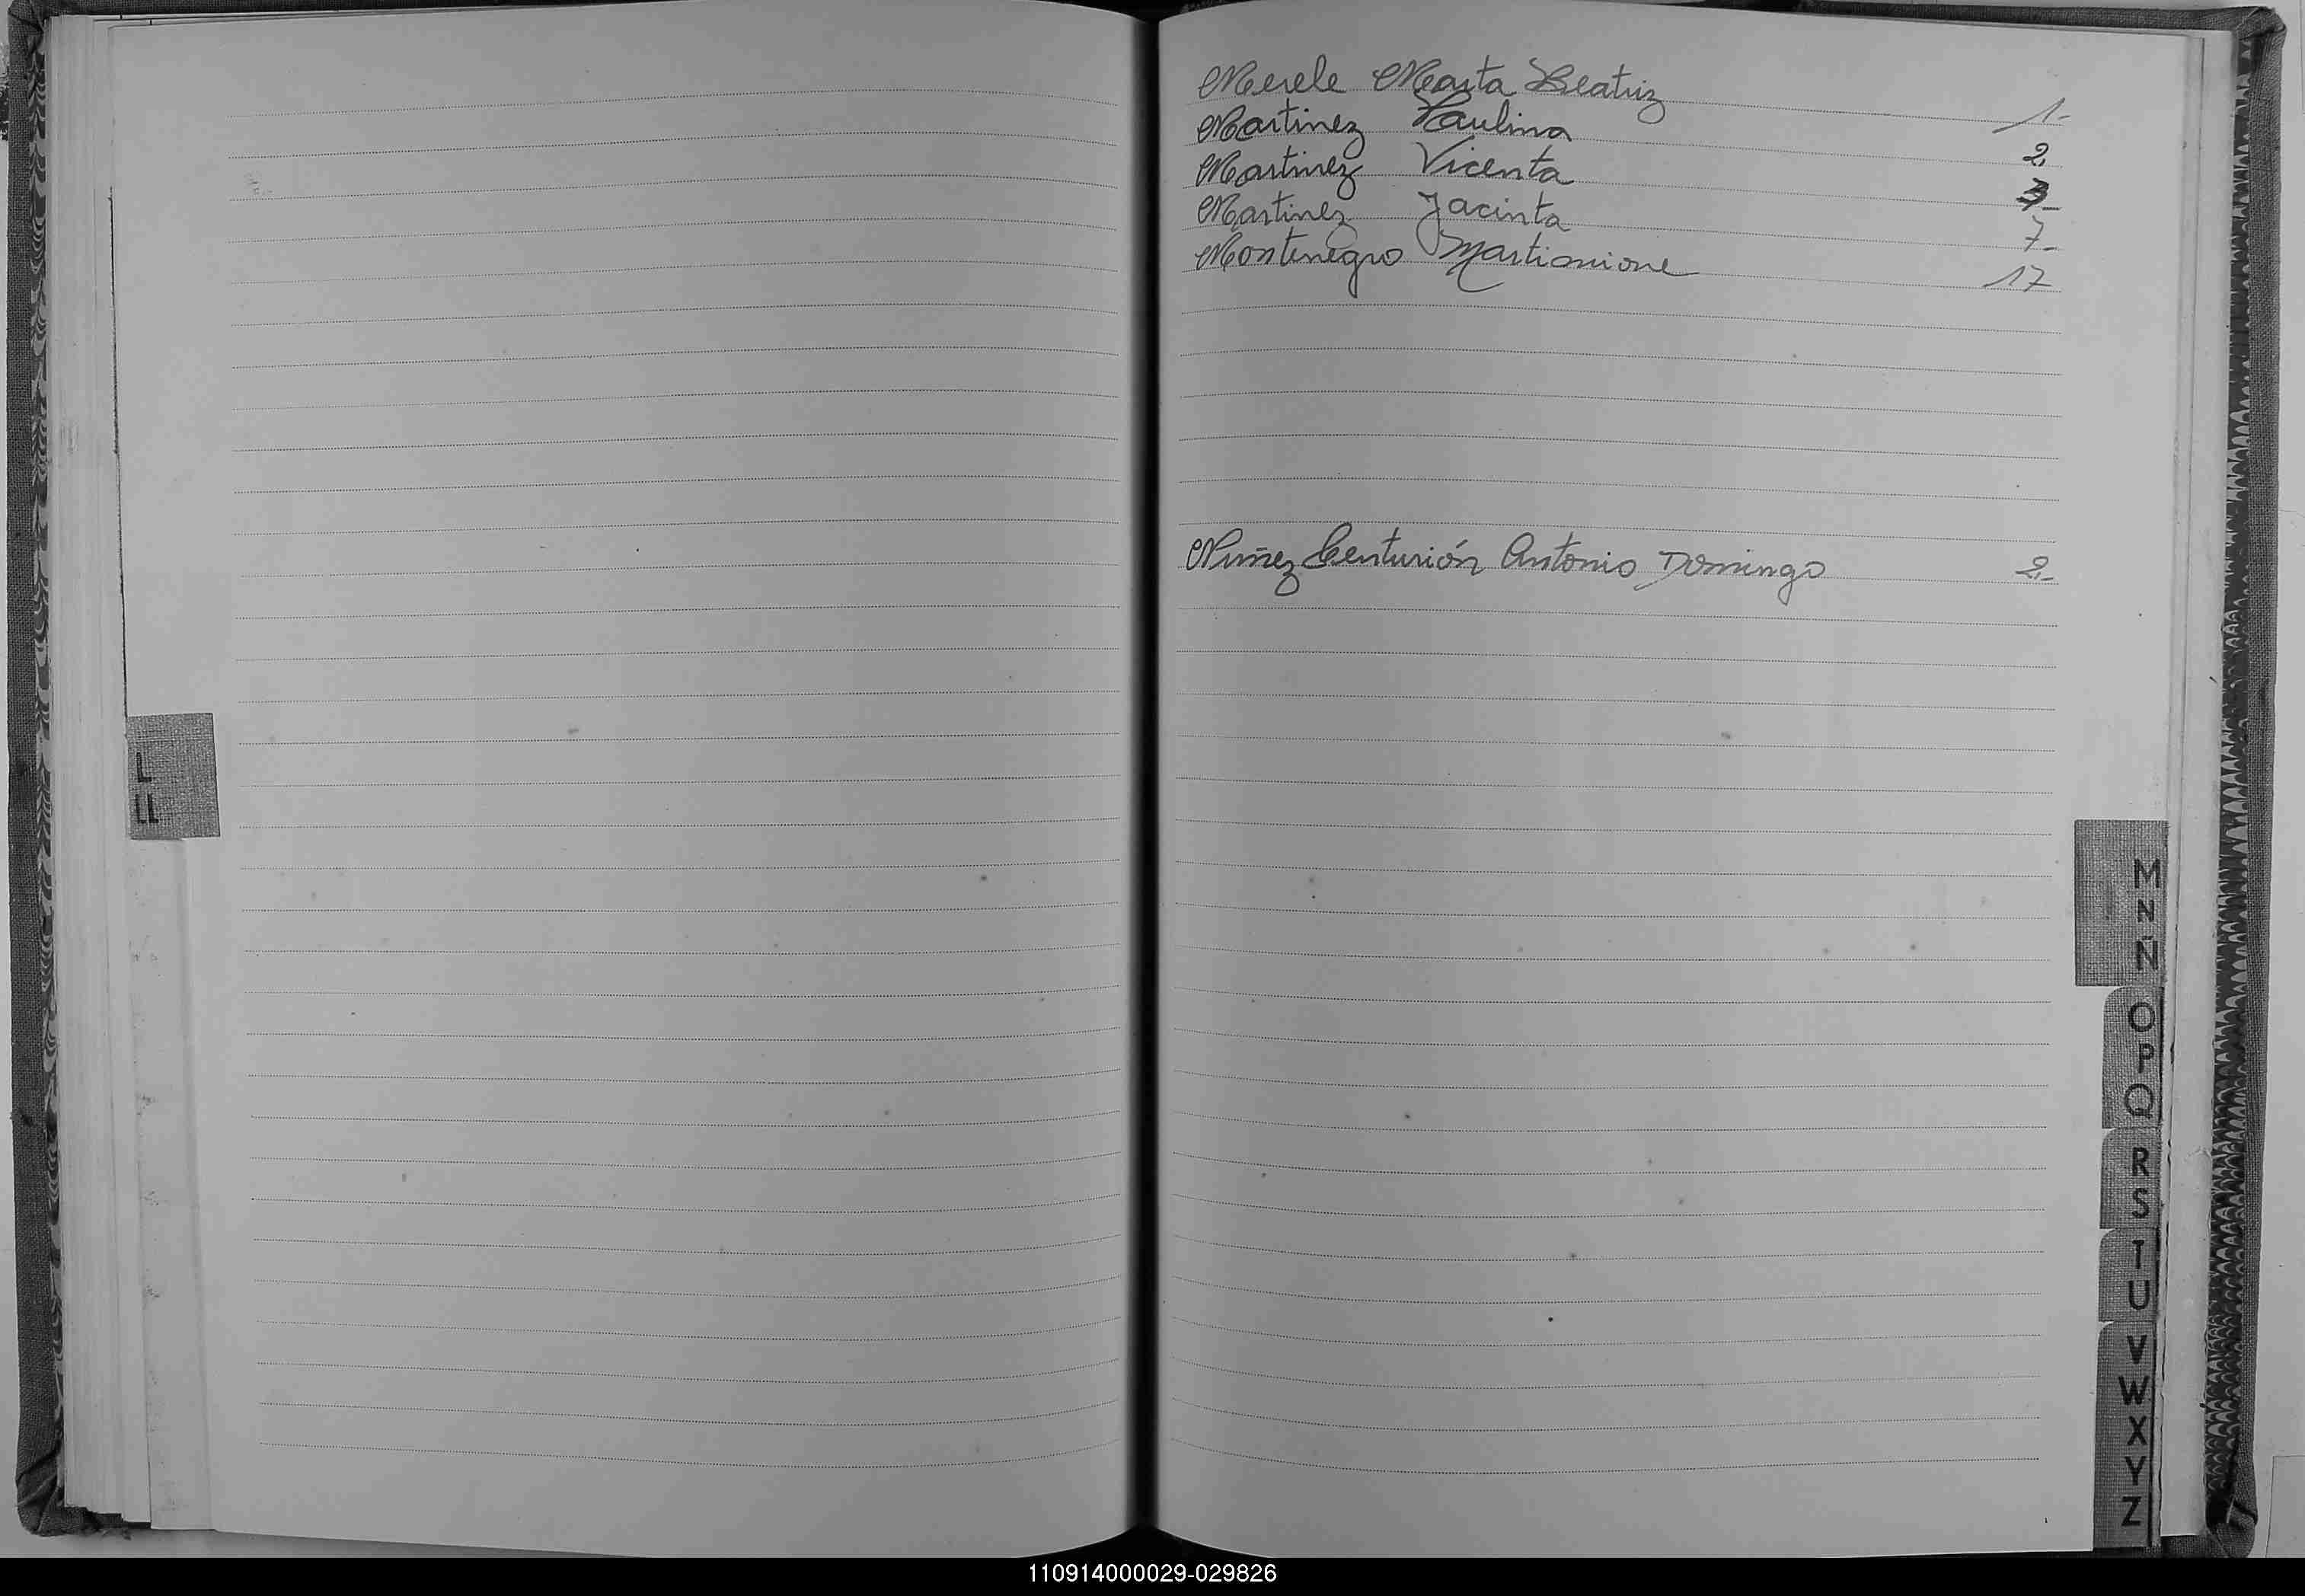 Merele Marta Beatriz 1-
Martinez Paulina 2,
Martinez Vicenta
Martinez Jacinta 7-
Montenegro 17
Nuñez Centurión Antonio Domingo 2,-
L
LL
M
N
Ñ
O
P
Q
R
S
T
U
V
W
X
Y
Z
110914000029-029826